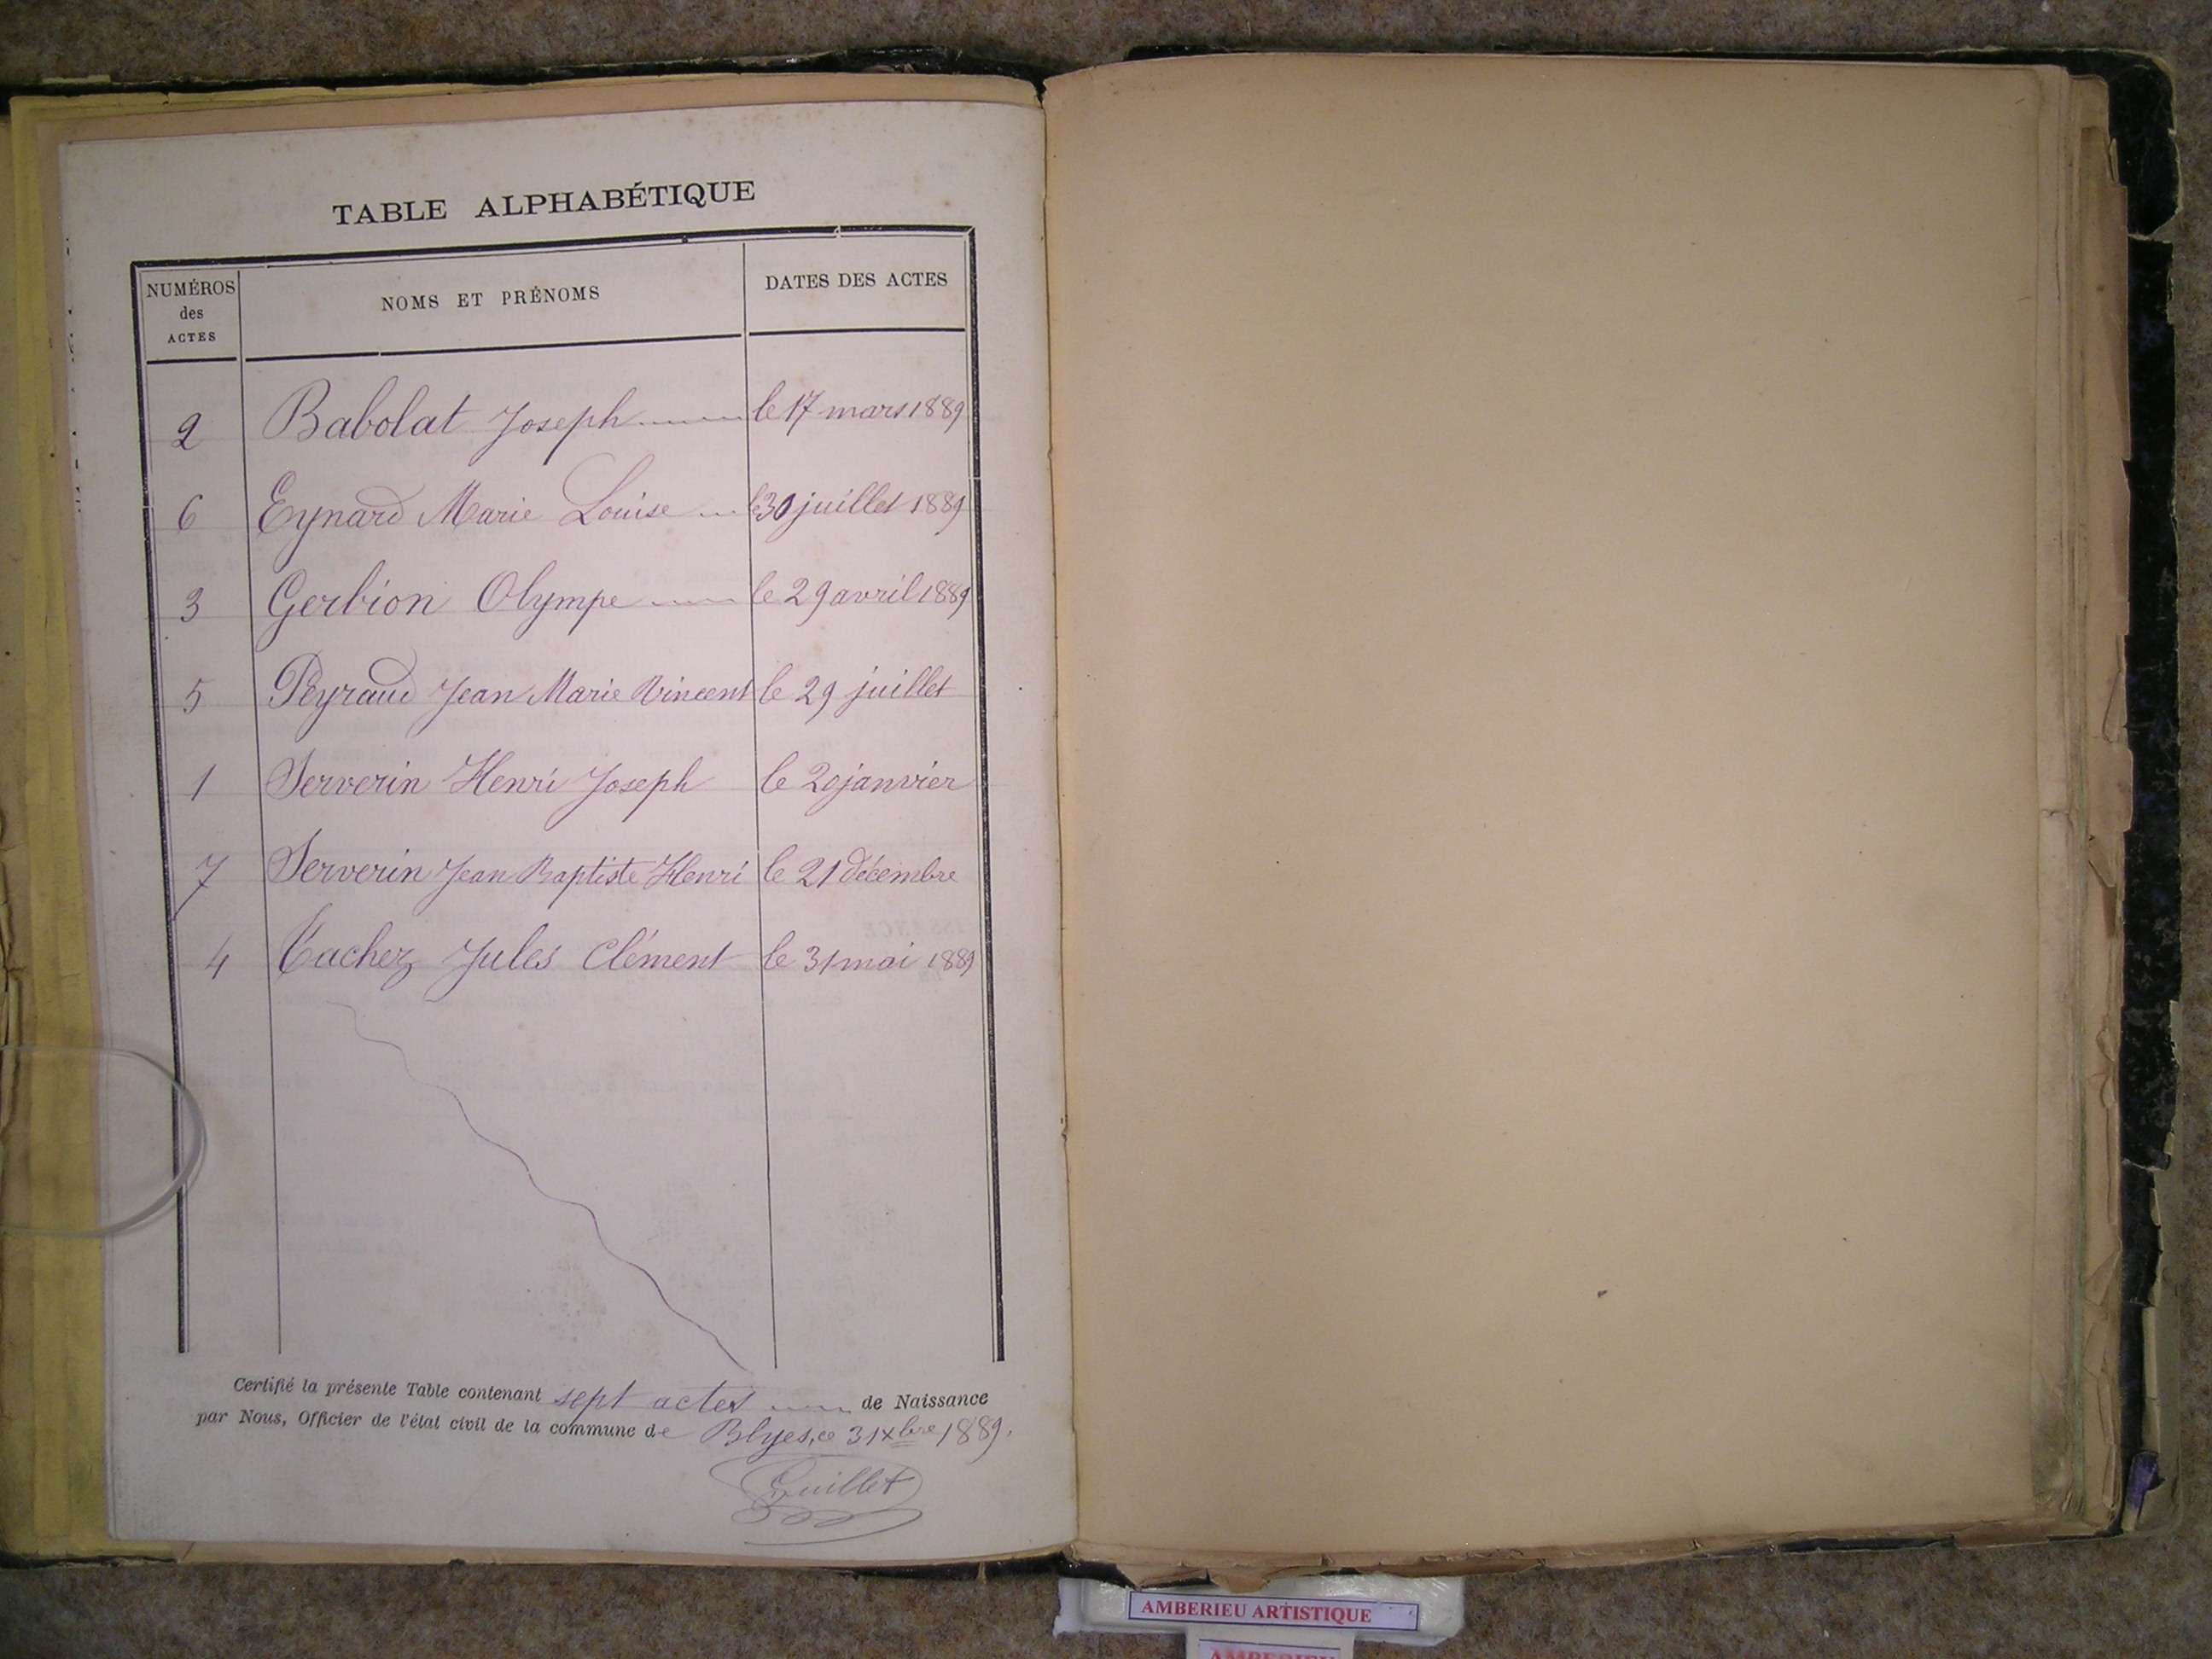 TABLE ALPHABÉTIQUE
NUMÉROS des ACTES NOMS ET PRÉNOMS DATES DES ACTES
2 Babolat Joseph le 17 mars 1889
6 Eynard Marie Louise le 30 juillet 1889
3 Gerbion Olympe le 29 avril 1889
5 Peyraud Jean Marie Vincent le 29 juillet
1 Serverin Henri Joseph le 20 janvier
7 Serverin Jean Baptiste Henri le 21 décembre
4 Tachez Jules Clément le 31 mai 1889
Certifié la présente Table contenant sept actes de Naissance
par Nous, Officier de l'état civil de la commune de Blyes, ce 31 xbre 1889.
Guillet
AMBERIEU ARTISTIQUE
AMBERIEU